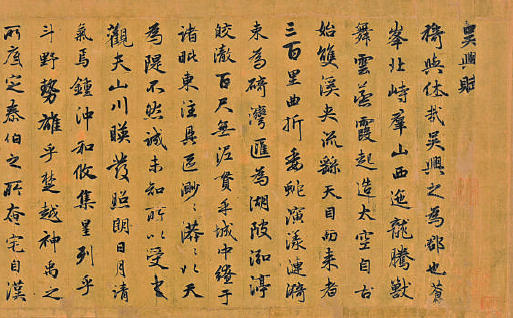 吳興賦
猗與休哉吳興之為郡也蒼
峯北峙羣山西迤龍騰獸
舞雲蒸霞起造太空自古
始雙溪夾流繇天目而來者
三百里曲折委蛇演漾漣漪
束為碕灣匯為湖陂泓渟
皎澈百尺無泥貫乎城中繚于
諸毗東注具區渺〻漭〻以天
為隄不然誠未知所以受之
觀夫山川暎發照朗日月清
氣焉鍾沖和攸集星列乎
斗野勢雄乎楚越神禹之
所底定泰伯之所奄宅自漢